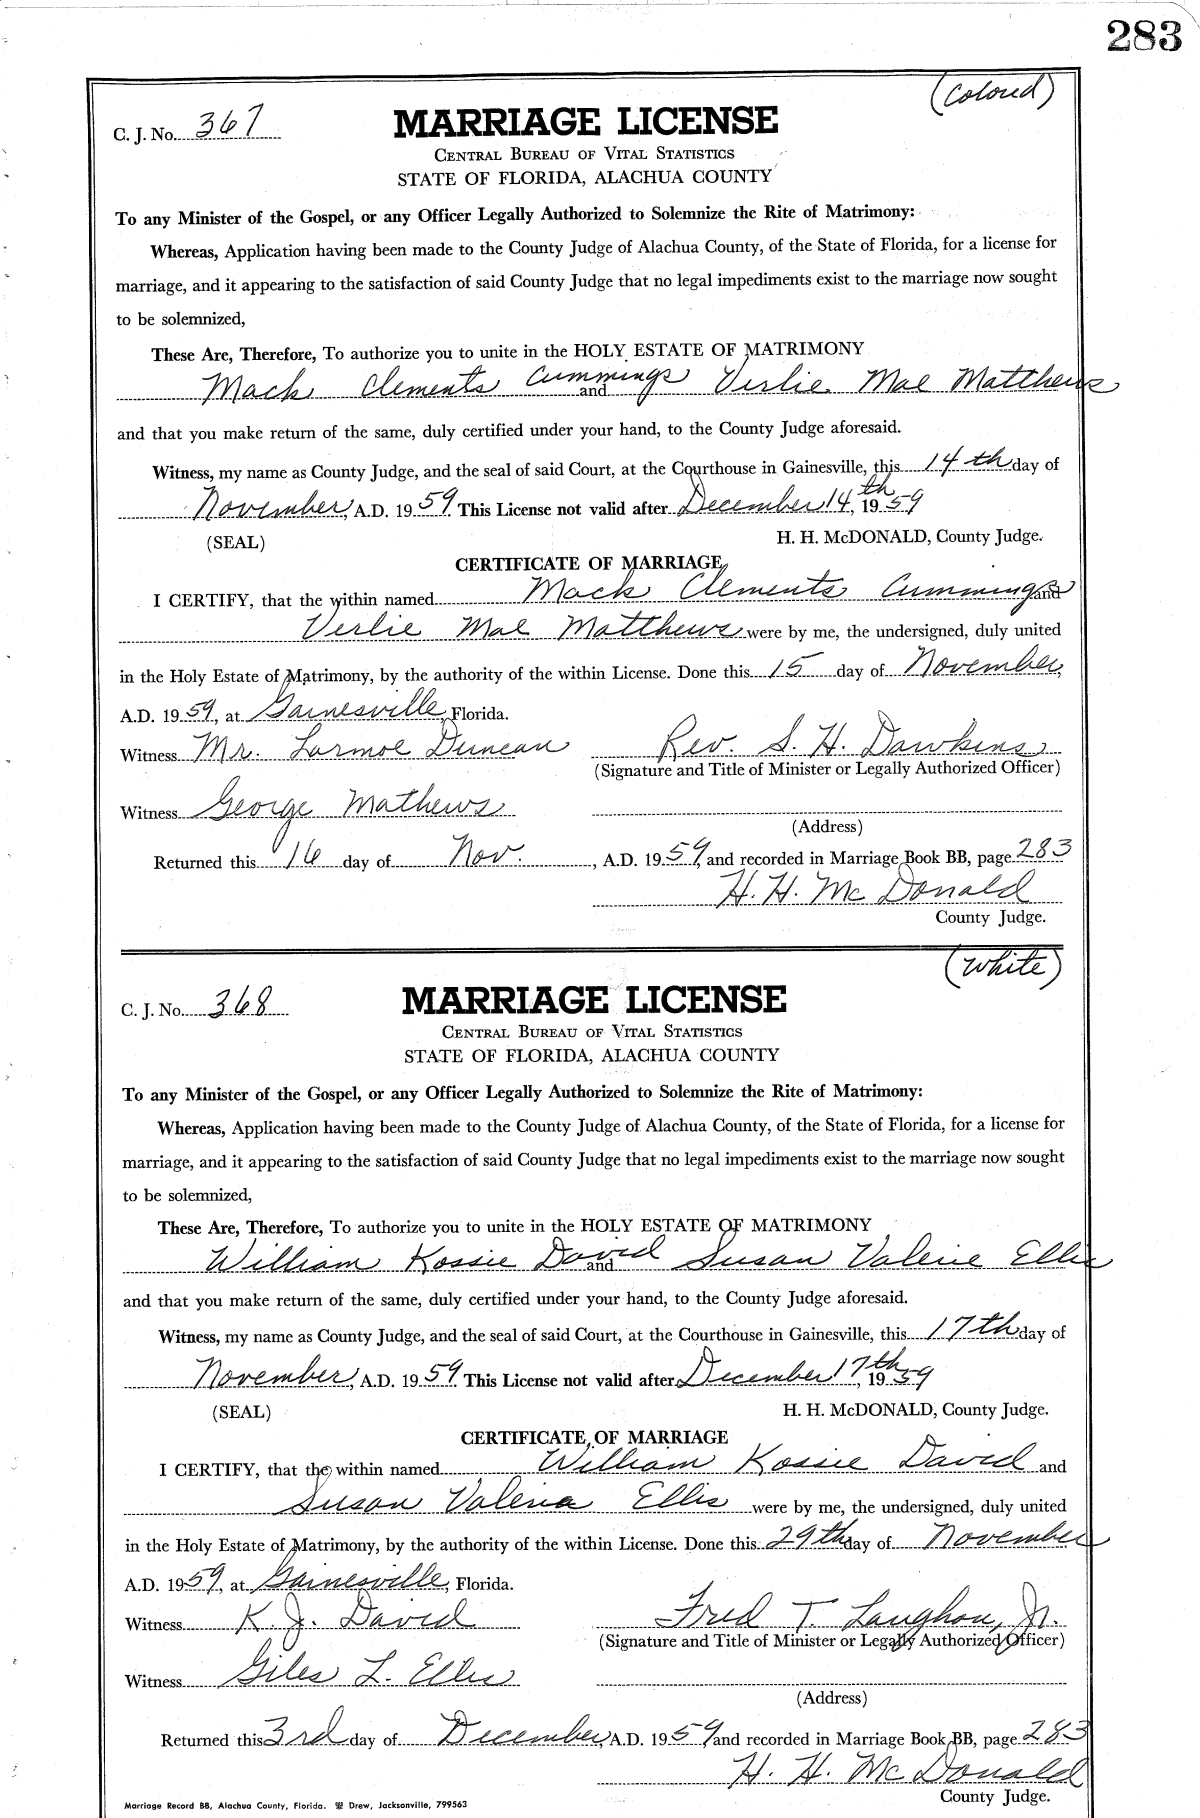 283
(Colored)
C. J. No. 367
MARRIAGE LICENSE
CENTRAL BUREAU OF VITAL STATISTICS
STATE OF FLORIDA, ALACHUA COUNTY
To any Minister of the Gospel, or any Officer Legally Authorized to Solemnize the Rite of Matrimony:
Whereas, Application having been made to the County Judge of Alachua County, of the State of Florida, for a license for
marriage, and it appearing to the satisfaction of said County Judge that no legal impediments exist to the marriage now sought
to be solemnized,
These Are, Therefore, To authorize you to unite in the HOLY ESTATE OF MATRIMONY
Mack Clements Cummings and Verlie Mae Matthews
and that you make return of the same, duly certified under your hand, to the County Judge aforesaid.
Witness, my name as County Judge, and the seal of said Court, at the Courthouse in Gainesville, this 14th day of
November, A.D. 1959. This License not valid after December 14th, 1959
(SEAL) H. H. McDONALD, County Judge.
CERTIFICATE OF MARRIAGE
I CERTIFY, that the within named Mack Clements Cummings and
Verlie Mae Matthews were by me, the undersigned, duly united
in the Holy Estate of Matrimony, by the authority of the within License. Done this 15 day of November,
A.D. 1959, at Gainesville, Florida.
Witness Mr. Larmoe Duncan Rev. S. H. Dawkins
(Signature and Title of Minister or Legally Authorized Officer)
Witness George Mathews
(Address)
Returned this 16 day of Nov., A.D. 1959, and recorded in Marriage Book BB, page 283
H. H. McDonald
County Judge.
(White)
C. J. No. 368
MARRIAGE LICENSE
CENTRAL BUREAU OF VITAL STATISTICS
STATE OF FLORIDA, ALACHUA COUNTY
To any Minister of the Gospel, or any Officer Legally Authorized to Solemnize the Rite of Matrimony:
Whereas, Application having been made to the County Judge of Alachua County, of the State of Florida, for a license for
marriage, and it appearing to the satisfaction of said County Judge that no legal impediments exist to the marriage now sought
to be solemnized,
These Are, Therefore, To authorize you to unite in the HOLY ESTATE OF MATRIMONY
William Kossie David and Susan Valerie Ellis
and that you make return of the same, duly certified under your hand, to the County Judge aforesaid.
Witness, my name as County Judge, and the seal of said Court, at the Courthouse in Gainesville, this 17th day of
November, A.D. 1959. This License not valid after December 17th, 1959
(SEAL) H. H. McDONALD, County Judge.
CERTIFICATE OF MARRIAGE
I CERTIFY, that the within named William Kossie David and
Susan Valeria Ellis were by me, the undersigned, duly united
in the Holy Estate of Matrimony, by the authority of the within License. Done this 29th day of November
A.D. 1959, at Gainesville, Florida.
Witness K. J. David Fred T. Laughon, Jr.
(Signature and Title of Minister or Legally Authorized Officer)
Witness Giles L. Ellis
(Address)
Returned this 3rd day of December, A.D. 1959, and recorded in Marriage Book BB, page 283
H. H. McDonald
County Judge.
Marriage Record BB, Alachua County, Florida. Drew, Jacksonville, 799563